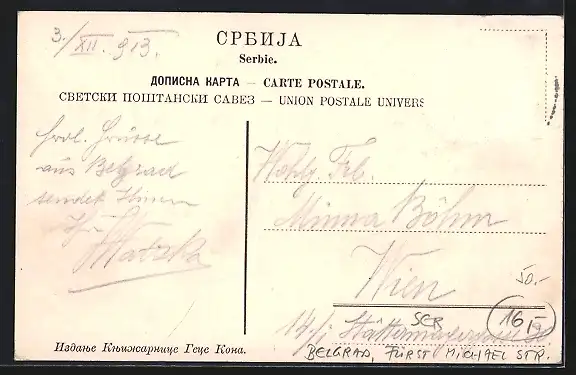 3./XII. 913.
СРБИЈА
Serbie.
ДОПИСНА КАРТА — CARTE POSTALE.
СВЕТСКИ ПОШТАНСКИ САВЕЗ — UNION POSTALE UNIVERS
Grüsse
aus Belgrad
sendet Ihnen
Ihr
Wohlg. Frl.
Minna Böhm
Wien
50.-
SER
16
BELGRAD, FÜRST MICHAEL STR.
Издање Књижарнице Геце Кона.